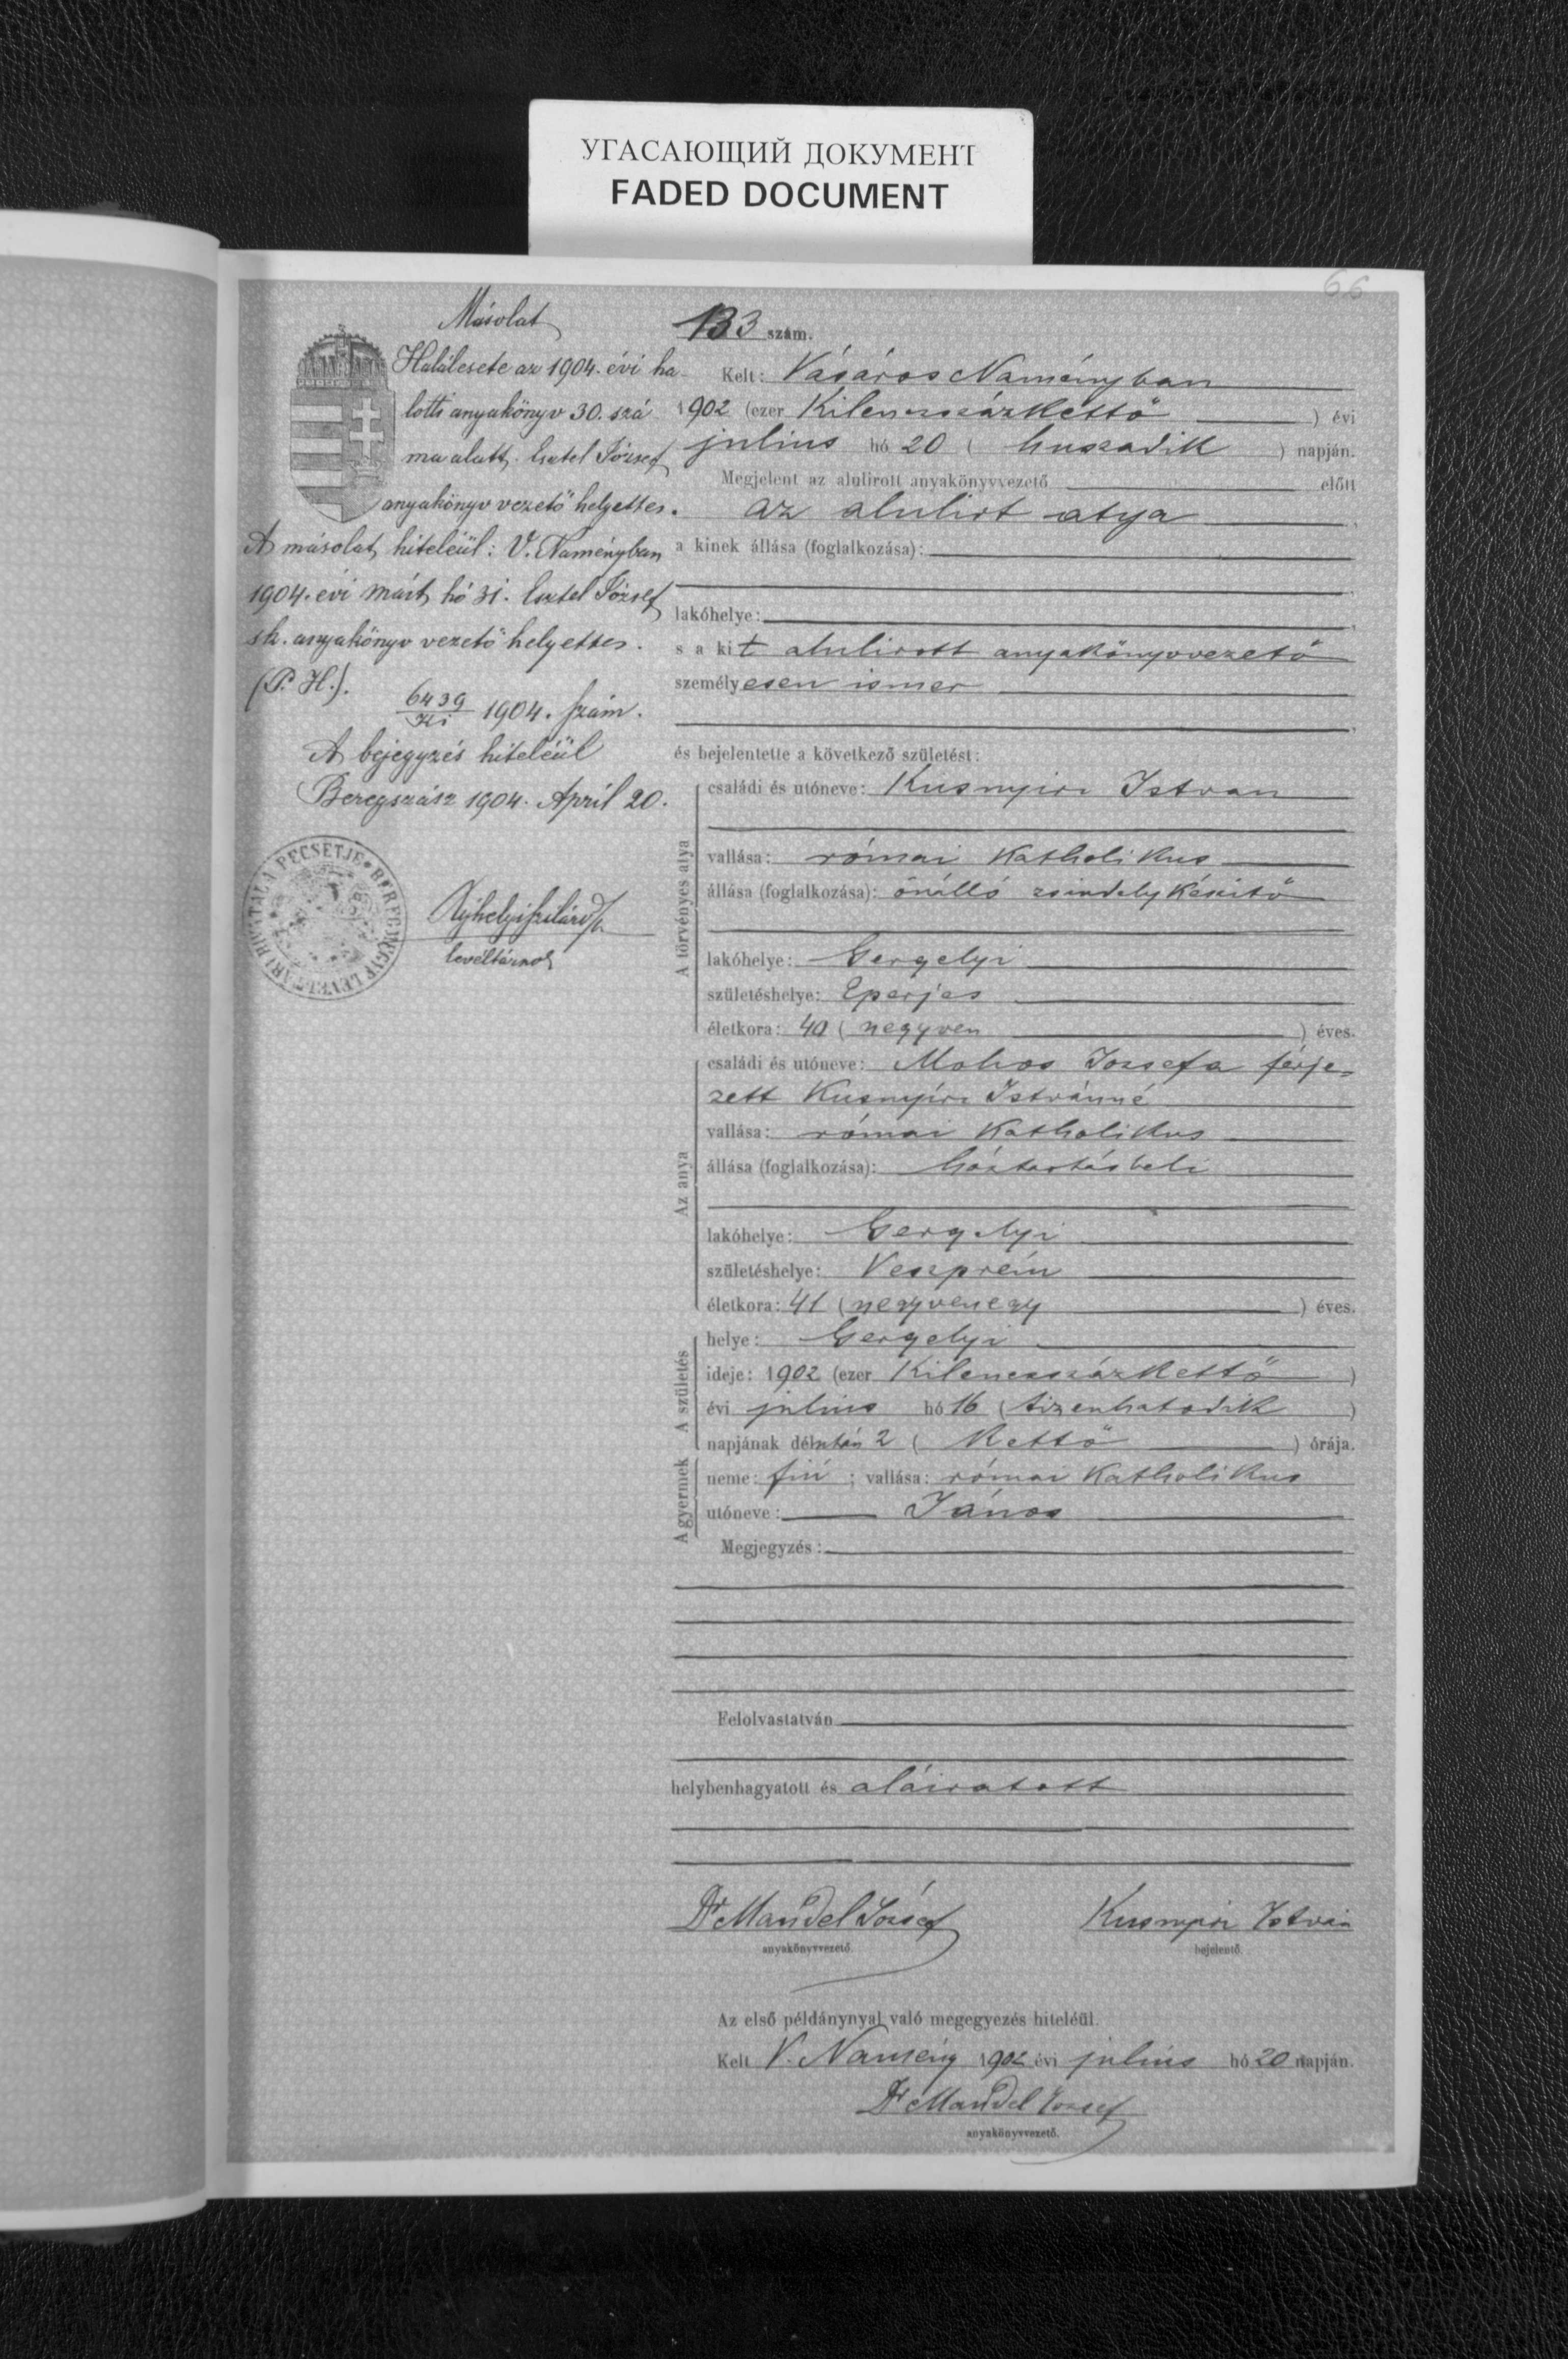 УГАСАЮЩИЙ ДОКУМЕНТ
FADED DOCUMENT
66
Másolat
Halálesete az 1904. évi ha-
lotti anyakönyv 30. szá
ma alatt. Esztel József
anyakönyv vezető helyettes.
A másolat hiteleül: V. Naményban
1904. évi márt hó 31. Esztel József
sk. anyakönyv vezető helyettes.
(P. H.).
6439
1904. szám.
A bejegyzés hiteléül
Beregszász 1904. April 20.
levéltárnok
133 szám.
Kelt: Vásáros Naményban
1902 (ezer Kilenczszázkettő ) évi
julius hó 20 ( huszadik ) napján.
Megjelent az alulirott anyakönyvvezető előtt
az alulirt atya
a kinek állása (foglalkozása):
lakóhelye:
s a kit alulirott anyakönyvvezető
személyesen ismer
és bejelentette a következő születést:
A törvényes atya
családi és utóneve: Kusnyiri Istvan
vallása: római katholikus
állása (foglalkozása): önálló zsindelykészitő
lakóhelye: Gergelyi
születéshelye: Eperjes
életkora: 40 ( negyven ) éves.
Az anya
családi és utóneve: Mohos Jozsefa férje-
zett Kusnyíri Istvánné
vallása: római katholikus
állása (foglalkozása): háztartásbeli
lakóhelye: Gergelyi
születéshelye: Veszprém
életkora: 41 ( negyvenegy ) éves.
A születés
helye: Gergelyi
ideje: 1902 (ezer Kilenczszázkettő )
évi julius hó 16 ( tizenhatodik )
napjának délután 2 ( kettő ) órája.
A gyermek
neme: fiú ; vallása: római katholikus
utóneve: János
Megjegyzés:
Felolvastatván
helybenhagyatott és aláiratott
Dr Mandel József
anyakönyvvezető.
Kusnyiri István
bejelentő.
Az első példánynyal való megegyezés hiteléül.
Kelt V. Namény 1902 évi julius hó 20 napján.
Dr Mandel József
anyakönyvvezető.